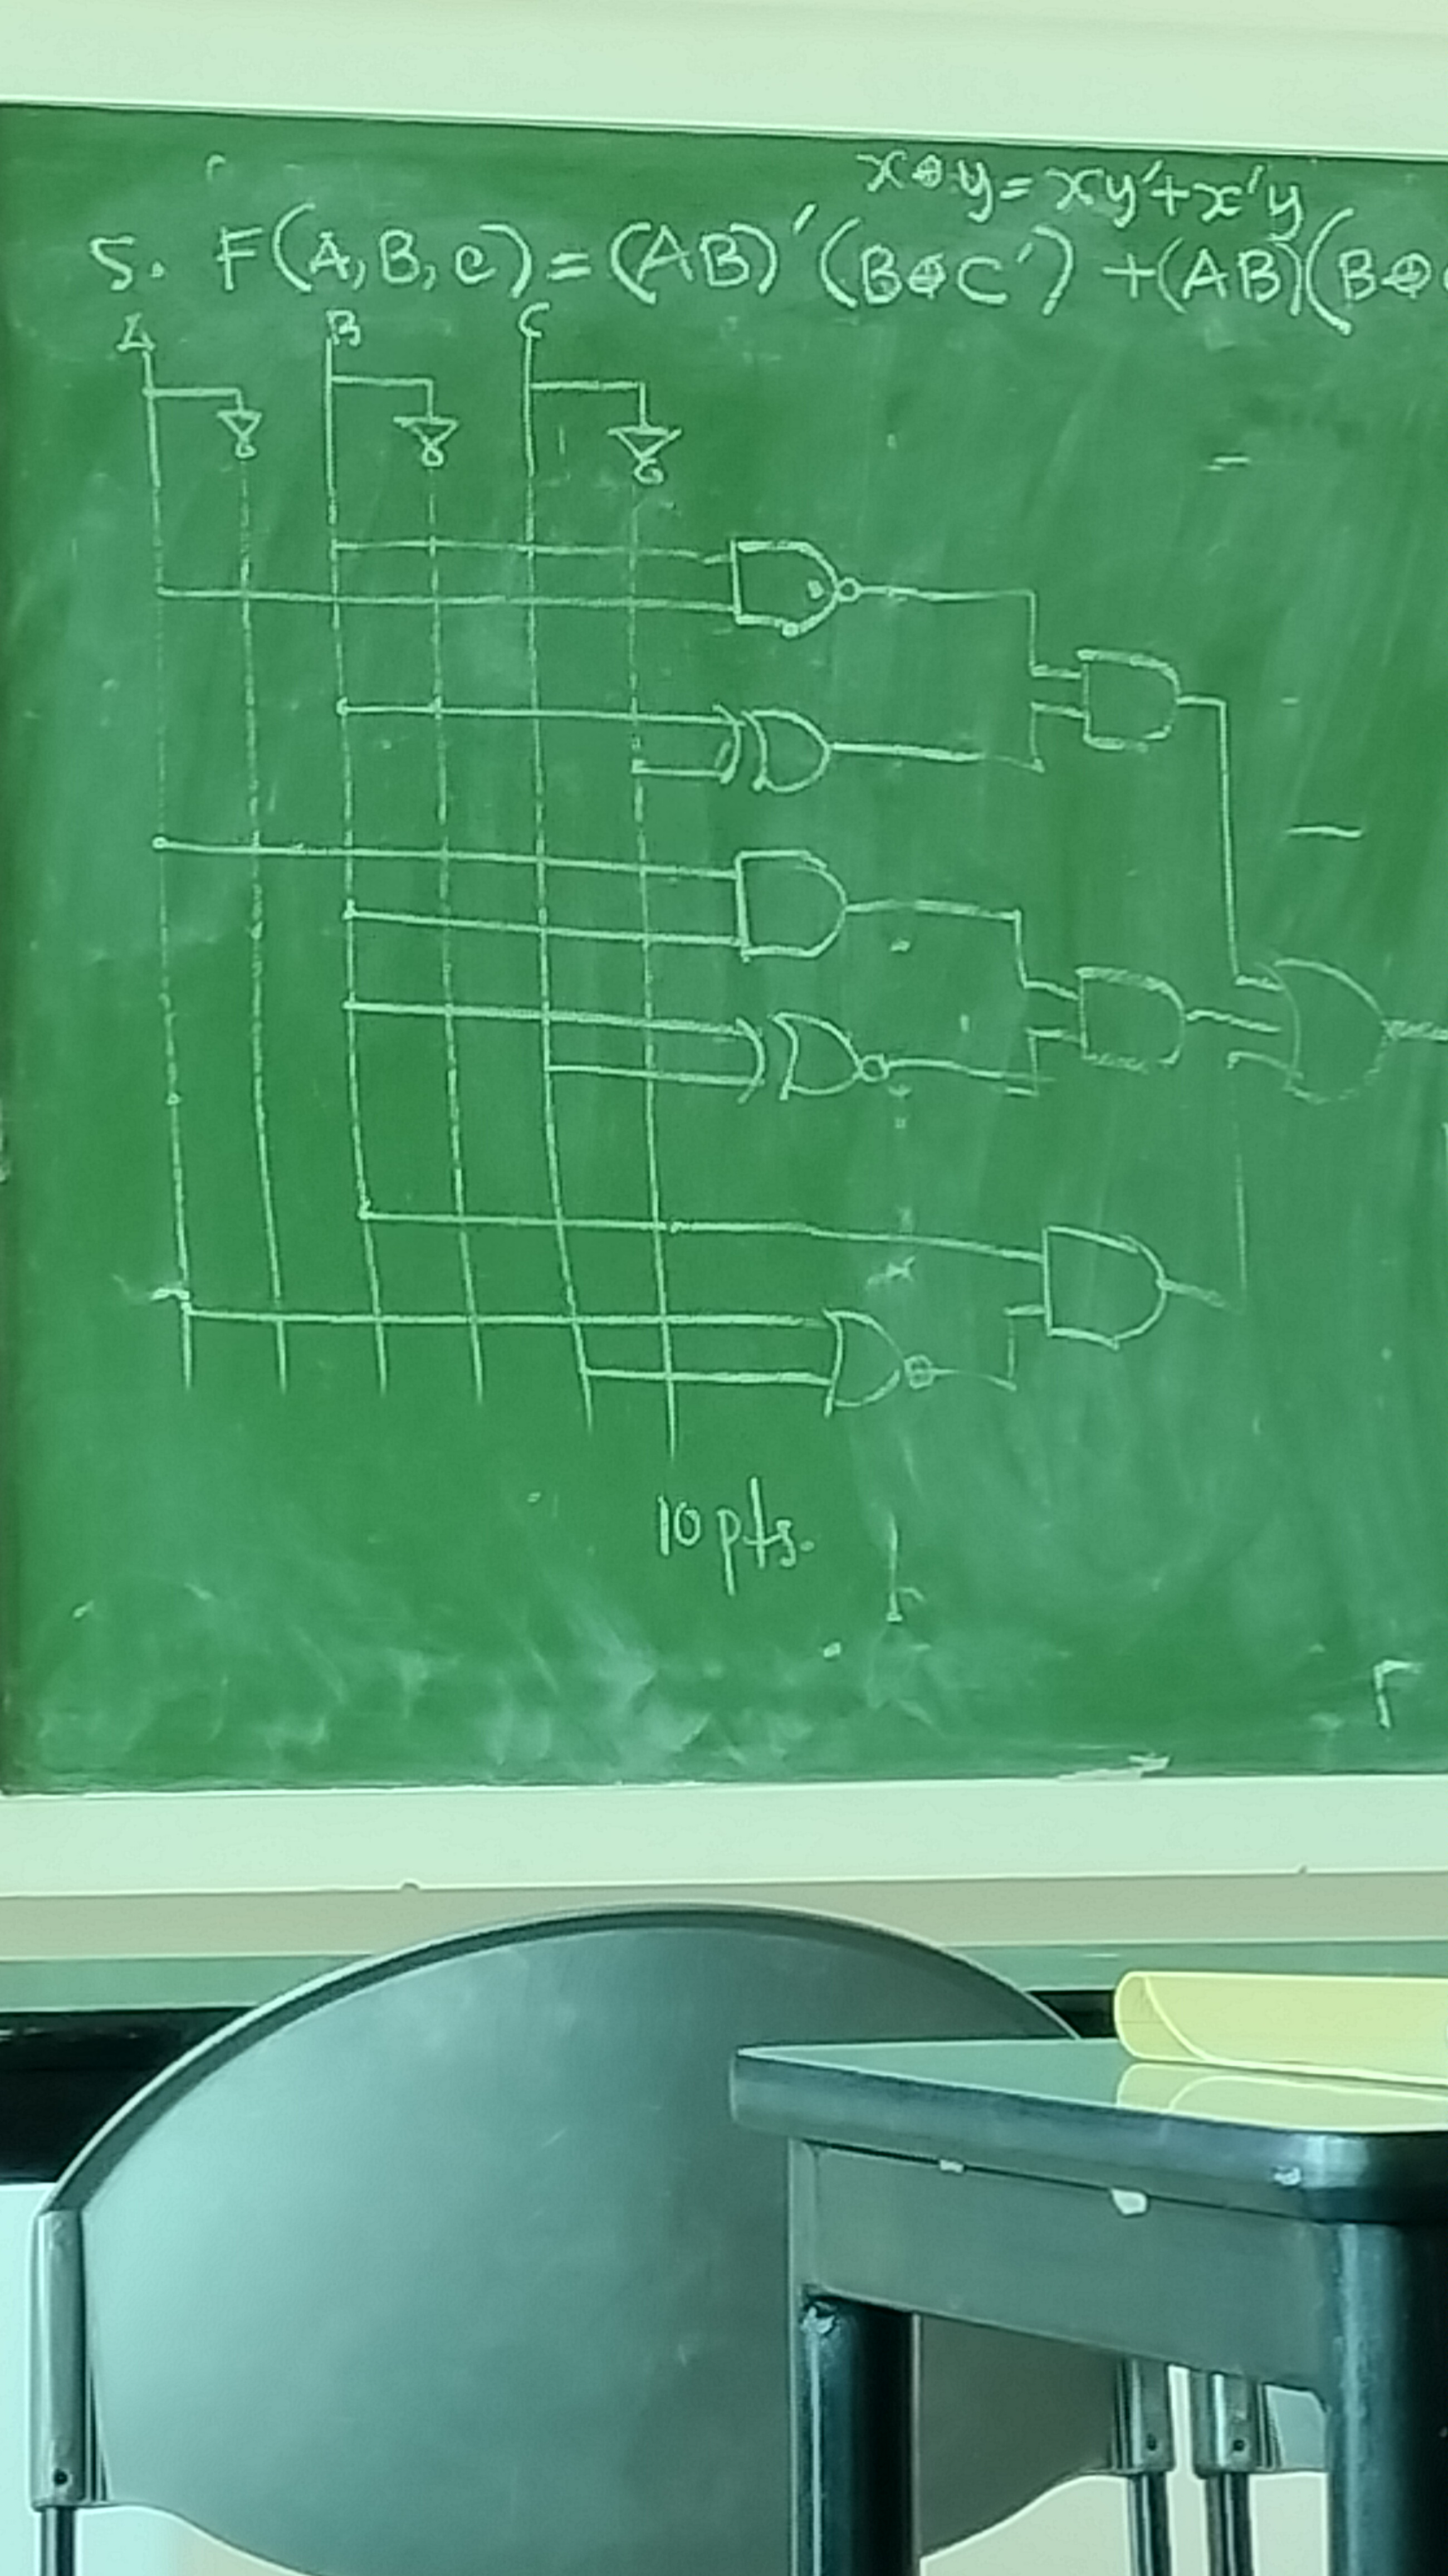 x⊕y=xy'+x'y
5. F(A,B,C)=(AB)'(B⊕C')+(AB)(B⊕
A B C
10 pts.